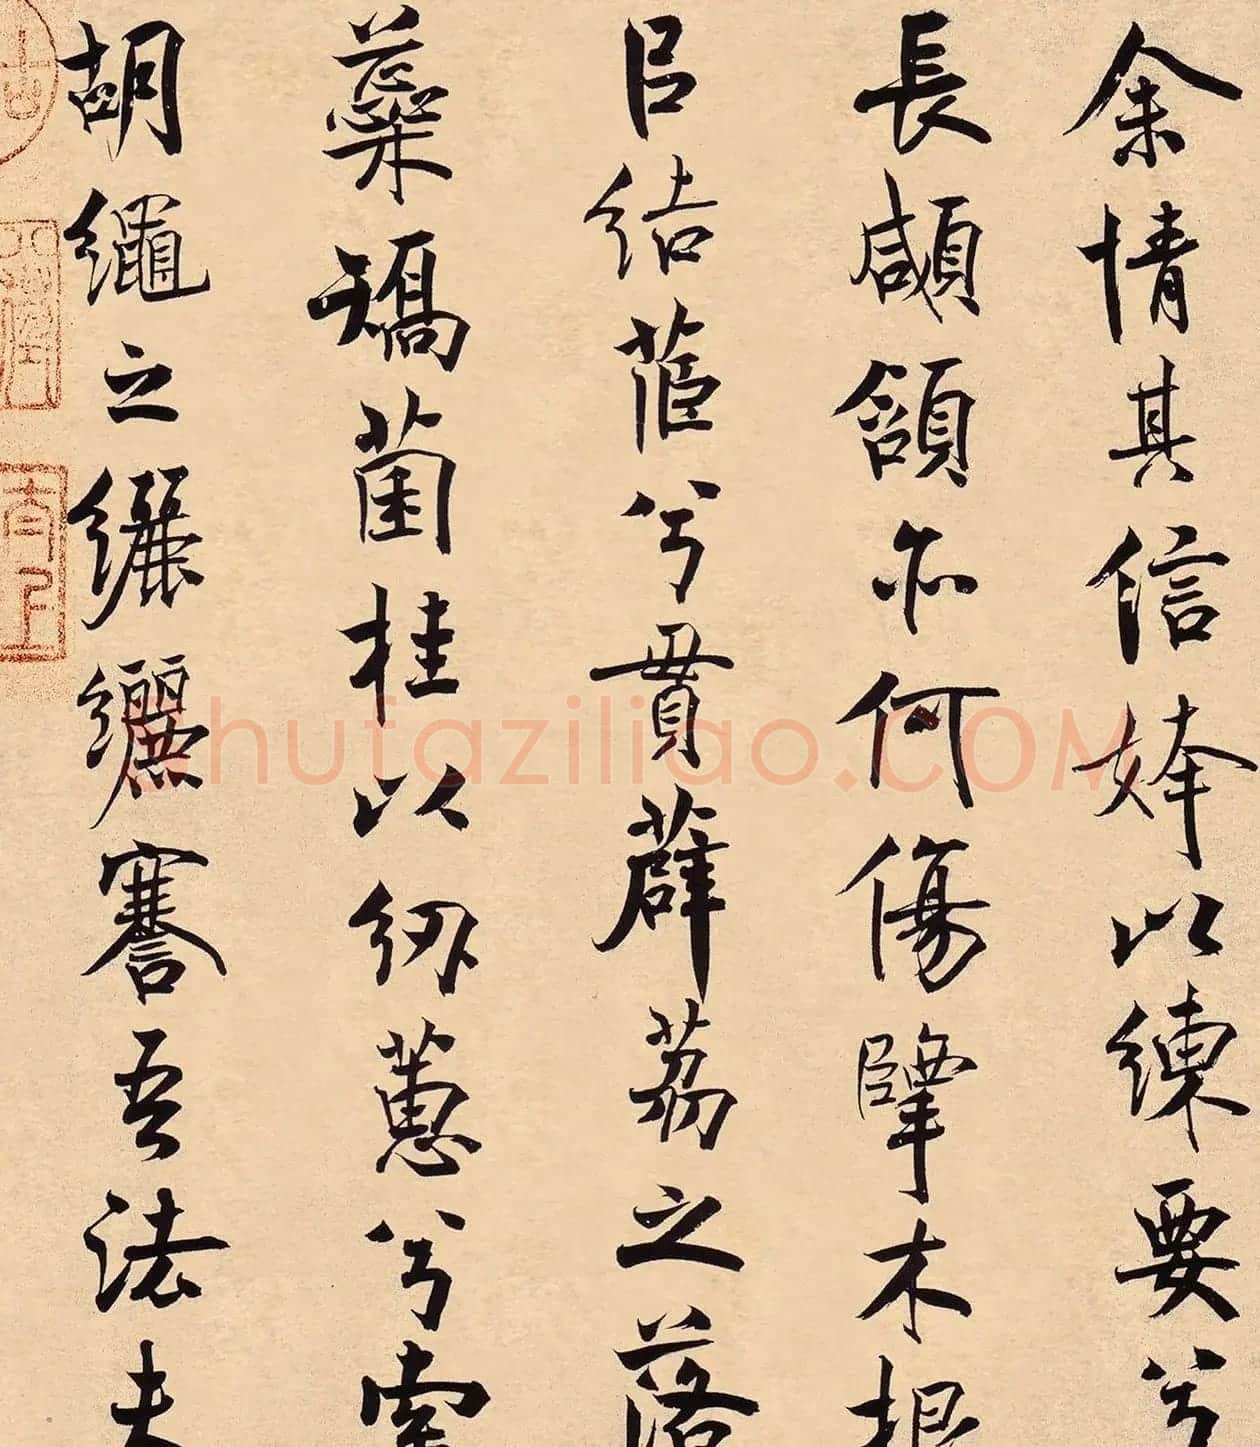 余情其信姱以練要兮
長顑頷亦何傷擥木根
㠯結茝兮貫薜荔之落
蘂矯菌桂以紉蕙兮索
胡繩之纚纚謇吾法夫
shufaziliao.COM